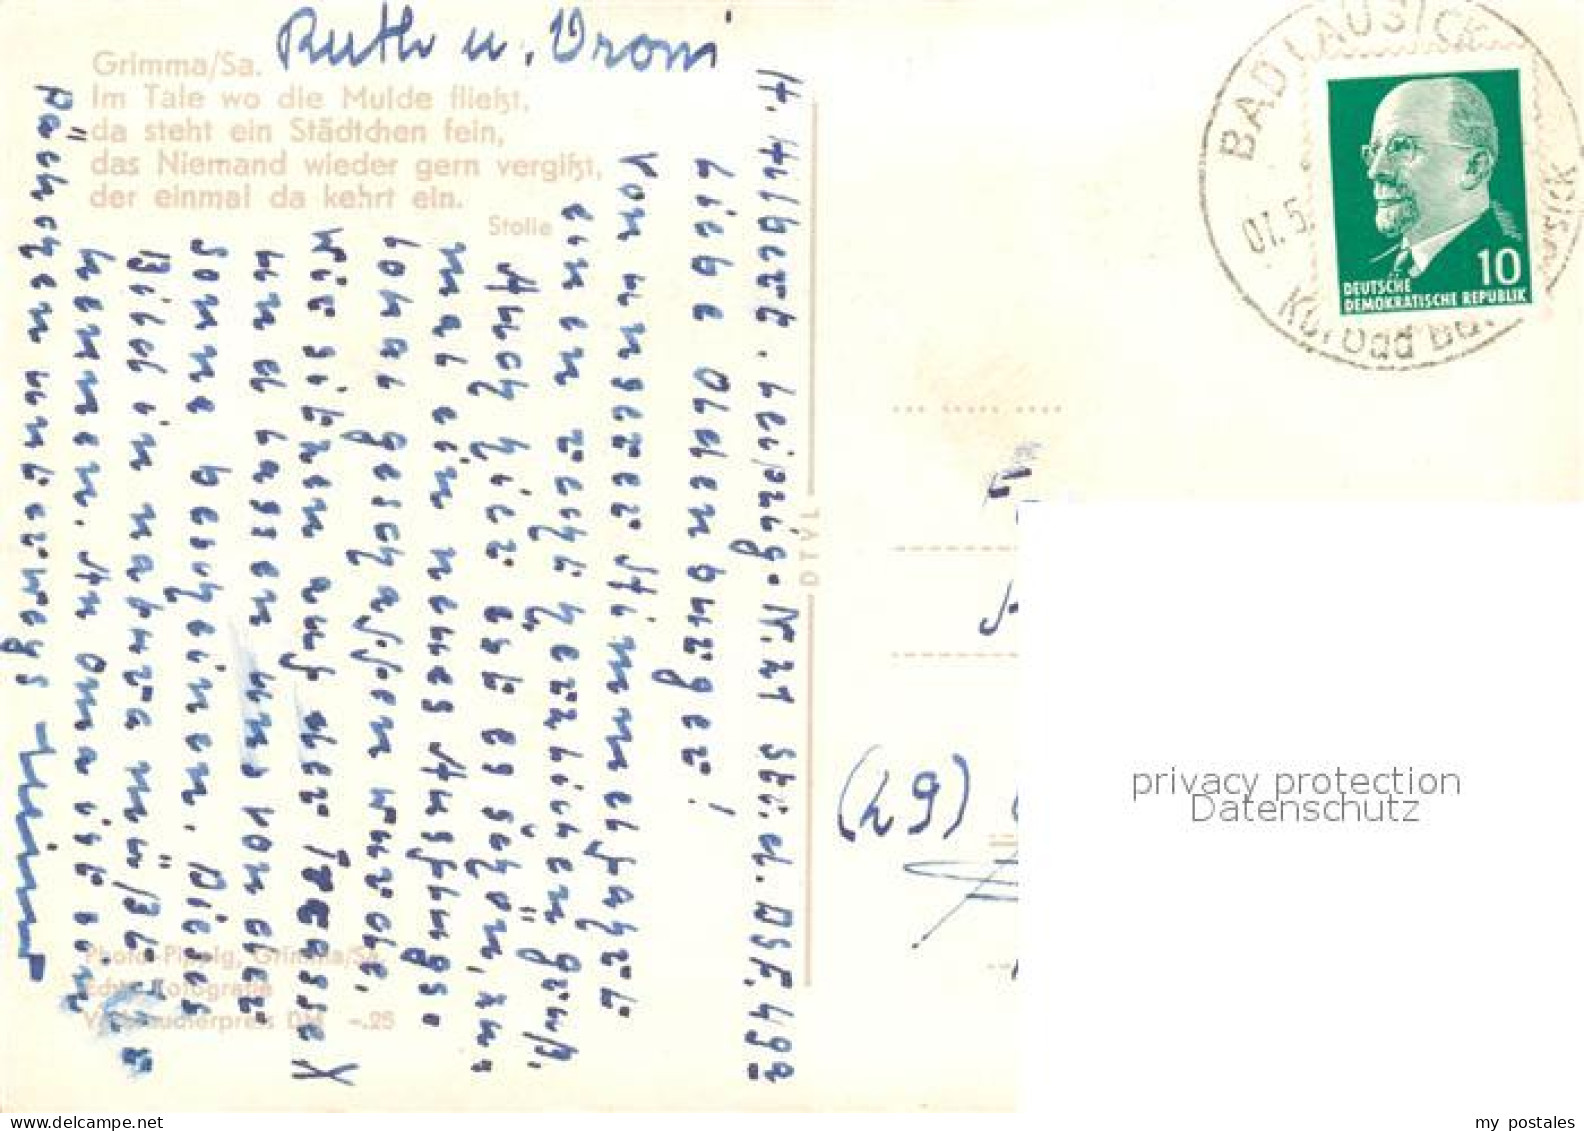 Ruth u. Vroni
Grimma/Sa.
Im Tale wo die Mulde fließt,
da steht ein Städtchen fein,
das Niemand wieder gern vergißt,
der einmal da kehrt ein.
Stolle
H. Hilbert. Leipzig. N.21 Str.d.DSF.49a
Liebe Oldenburger!
Von unserer Himmelfahrt
ein recht herzlichen Gruß.
Auch hier ist es schön, zu
mal ein neues Ausflugs
lokal geschaffen wurde.
Wir sitzen auf der Terasse
und lassen uns von der
Sonne bescheinen. Dieses
Bild in natura müßtet ihr
kennen. An Oma ist ein
Päckchen unterwegs
Photo-Pippig, Grimma/Sa.
Echte Fotografie
Verbraucherpreis DM -.25
BAD LAUSICK
01.5.
Kurbad
DEUTSCHE
DEMOKRATISCHE REPUBLIK
10
(29)
privacy protection
Datenschutz
my postales